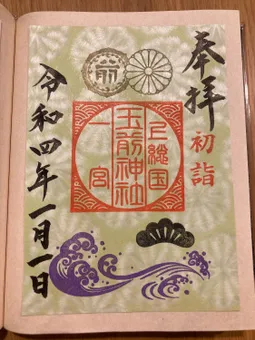 奉拝
初詣
上總国
玉前神社
一宮
前
令和四年一月一日